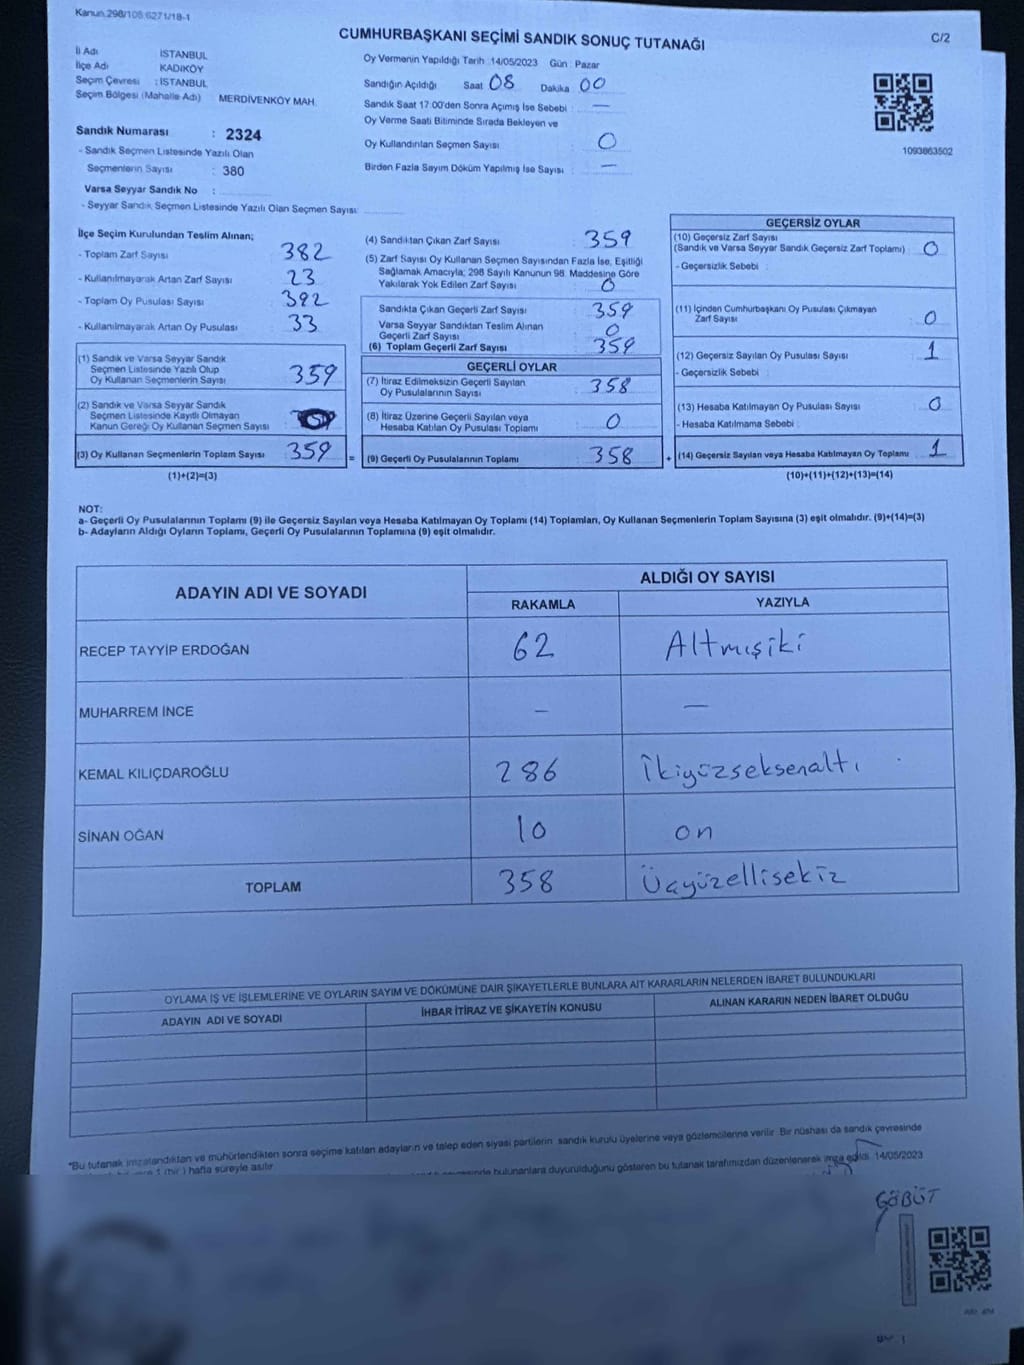 Kanun 298/105.6271/18-1
CUMHURBAŞKANI SEÇİMİ SANDIK SONUÇ TUTANAĞI
C/2
İl Adı İSTANBUL
İlçe Adı KADIKÖY
Seçim Çevresi : İSTANBUL
Seçim Bölgesi (Mahalle Adı) MERDİVENKÖY MAH.
Sandık Numarası : 2324
- Sandık Seçmen Listesinde Yazılı Olan
Seçmenlerin Sayısı : 380
Varsa Seyyar Sandık No :
- Seyyar Sandık Seçmen Listesinde Yazılı Olan Seçmen Sayısı:
Oy Vermenin Yapıldığı Tarih :14/05/2023 Gün : Pazar
Sandığın Açıldığı Saat 08 Dakika 00
Sandık Saat 17:00'den Sonra Açımış İse Sebebi : —
Oy Verme Saati Bitiminde Sırada Bekleyen ve
Oy Kullandırılan Seçmen Sayısı : 0
Birden Fazla Sayım Döküm Yapılmış İse Sayısı : —
1093863502
İlçe Seçim Kurulundan Teslim Alınan;
- Toplam Zarf Sayısı : 382
- Kullanılmayarak Artan Zarf Sayısı : 23
- Toplam Oy Pusulası Sayısı : 392
- Kullanılmayarak Artan Oy Pusulası : 33
(1) Sandık ve Varsa Seyyar Sandık
Seçmen Listesinde Yazılı Olup
Oy Kullanan Seçmenlerin Sayısı : 359
(2) Sandık ve Varsa Seyyar Sandık
Seçmen Listesinde Kayıtlı Olmayan
Kanun Gereği Oy Kullanan Seçmen Sayısı :
(3) Oy Kullanan Seçmenlerin Toplam Sayısı : 359 =
(1)+(2)=(3)
(4) Sandıktan Çıkan Zarf Sayısı : 359
(5) Zarf Sayısı Oy Kullanan Seçmen Sayısından Fazla İse, Eşitliği
Sağlamak Amacıyla; 298 Sayılı Kanunun 98. Maddesine Göre
Yakılarak Yok Edilen Zarf Sayısı : 0
Sandıkta Çıkan Geçerli Zarf Sayısı : 359
Varsa Seyyar Sandıktan Teslim Alınan
Geçerli Zarf Sayısı : 0
(6) Toplam Geçerli Zarf Sayısı : 359
GEÇERLİ OYLAR
(7) İtiraz Edilmeksizin Geçerli Sayılan
Oy Pusulalarının Sayısı : 358
(8) İtiraz Üzerine Geçerli Sayılan veya
Hesaba Katılan Oy Pusulası Toplamı : 0
(9) Geçerli Oy Pusulalarının Toplamı : 358 +
GEÇERSİZ OYLAR
(10) Geçersiz Zarf Sayısı
(Sandık ve Varsa Seyyar Sandık Geçersiz Zarf Toplamı) : 0
- Geçersizlik Sebebi :
(11) İçinden Cumhurbaşkanı Oy Pusulası Çıkmayan
Zarf Sayısı : 0
(12) Geçersiz Sayılan Oy Pusulası Sayısı : 1
- Geçersizlik Sebebi :
(13) Hesaba Katılmayan Oy Pusulası Sayısı : 0
- Hesaba Katılmama Sebebi :
(14) Geçersiz Sayılan veya Hesaba Katılmayan Oy Toplamı : 1
(10)+(11)+(12)+(13)=(14)
NOT:
a- Geçerli Oy Pusulalarının Toplamı (9) ile Geçersiz Sayılan veya Hesaba Katılmayan Oy Toplamı (14) Toplamları, Oy Kullanan Seçmenlerin Toplam Sayısına (3) eşit olmalıdır. (9)+(14)=(3)
b- Adayların Aldığı Oyların Toplamı, Geçerli Oy Pusulalarının Toplamına (9) eşit olmalıdır.
ADAYIN ADI VE SOYADI
ALDIĞI OY SAYISI
RAKAMLA YAZIYLA
RECEP TAYYİP ERDOĞAN 62 Altmışiki
MUHARREM İNCE — —
KEMAL KILIÇDAROĞLU 286 İkiyüzseksenaltı
SİNAN OĞAN 10 on
TOPLAM 358 Üçyüzellisekiz
OYLAMA İŞ VE İŞLEMLERİNE VE OYLARIN SAYIM VE DÖKÜMÜNE DAİR ŞİKAYETLERLE BUNLARA AİT KARARLARIN NELERDEN İBARET BULUNDUKLARI
ADAYIN ADI VE SOYADI İHBAR İTİRAZ VE ŞİKAYETİN KONUSU ALINAN KARARIN NEDEN İBARET OLDUĞU
*Bu tutanak imzalandıktan ve mühürlendikten sonra seçime katılan adayların ve talep eden siyasi partilerin sandık kurulu üyelerine veya gözlemcilerine verilir. Bir nüshası da sandık çevresinde
1 (bir) hafta süreyle asılır.
bulunanlara duyurulduğunu gösteren bu tutanak tarafımızdan düzenlenerek imza edildi. 14/05/2023
GÖBÜT